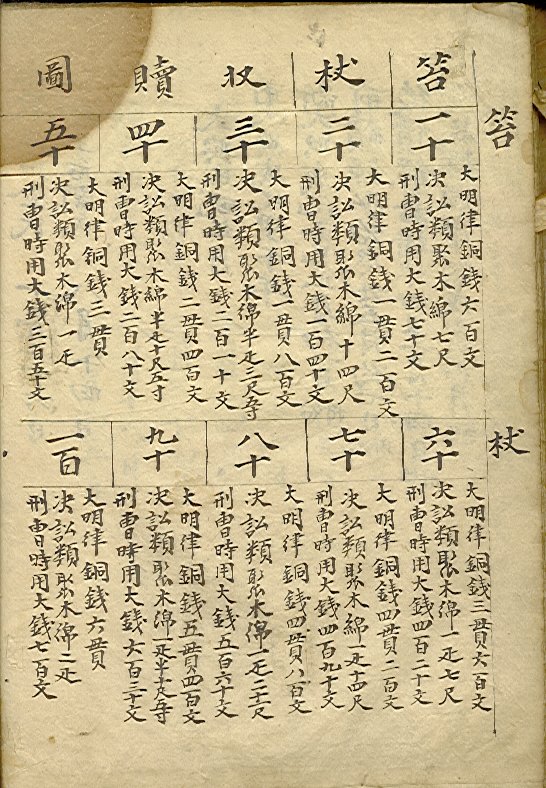 笞杖収贖圖
笞
一十
大明律銅錢六百文
决訟類聚木綿七尺
刑曹時用大錢七十文
二十
大明律銅錢一貫二百文
决訟類聚木綿十四尺
刑曹時用大錢一百四十文
三十
大明律銅錢一貫八百文
决訟類聚木綿半疋三尺五寸
刑曹時用大錢二百一十文
四十
大明律銅錢二貫四百文
决訟類聚木綿半疋十尺五寸
刑曹時用大錢二百八十文
五十
大明律銅錢三貫
决訟類聚木綿一疋
刑曹時用大錢三百五十文
杖
六十
大明律銅錢三貫六百文
决訟類聚木綿一疋七尺
刑曹時用大錢四百二十文
七十
大明律銅錢四貫二百文
决訟類聚木綿一疋十四尺
刑曹時用大錢四百九十文
八十
大明律銅錢四貫八百文
决訟類聚木綿一疋二十一尺
刑曹時用大錢五百六十文
九十
大明律銅錢五貫四百文
决訟類聚木綿一疋半十尺五寸
刑曹時用大錢六百三十文
一百
大明律銅錢六貫
决訟類聚木綿二疋
刑曹時用大錢七百文